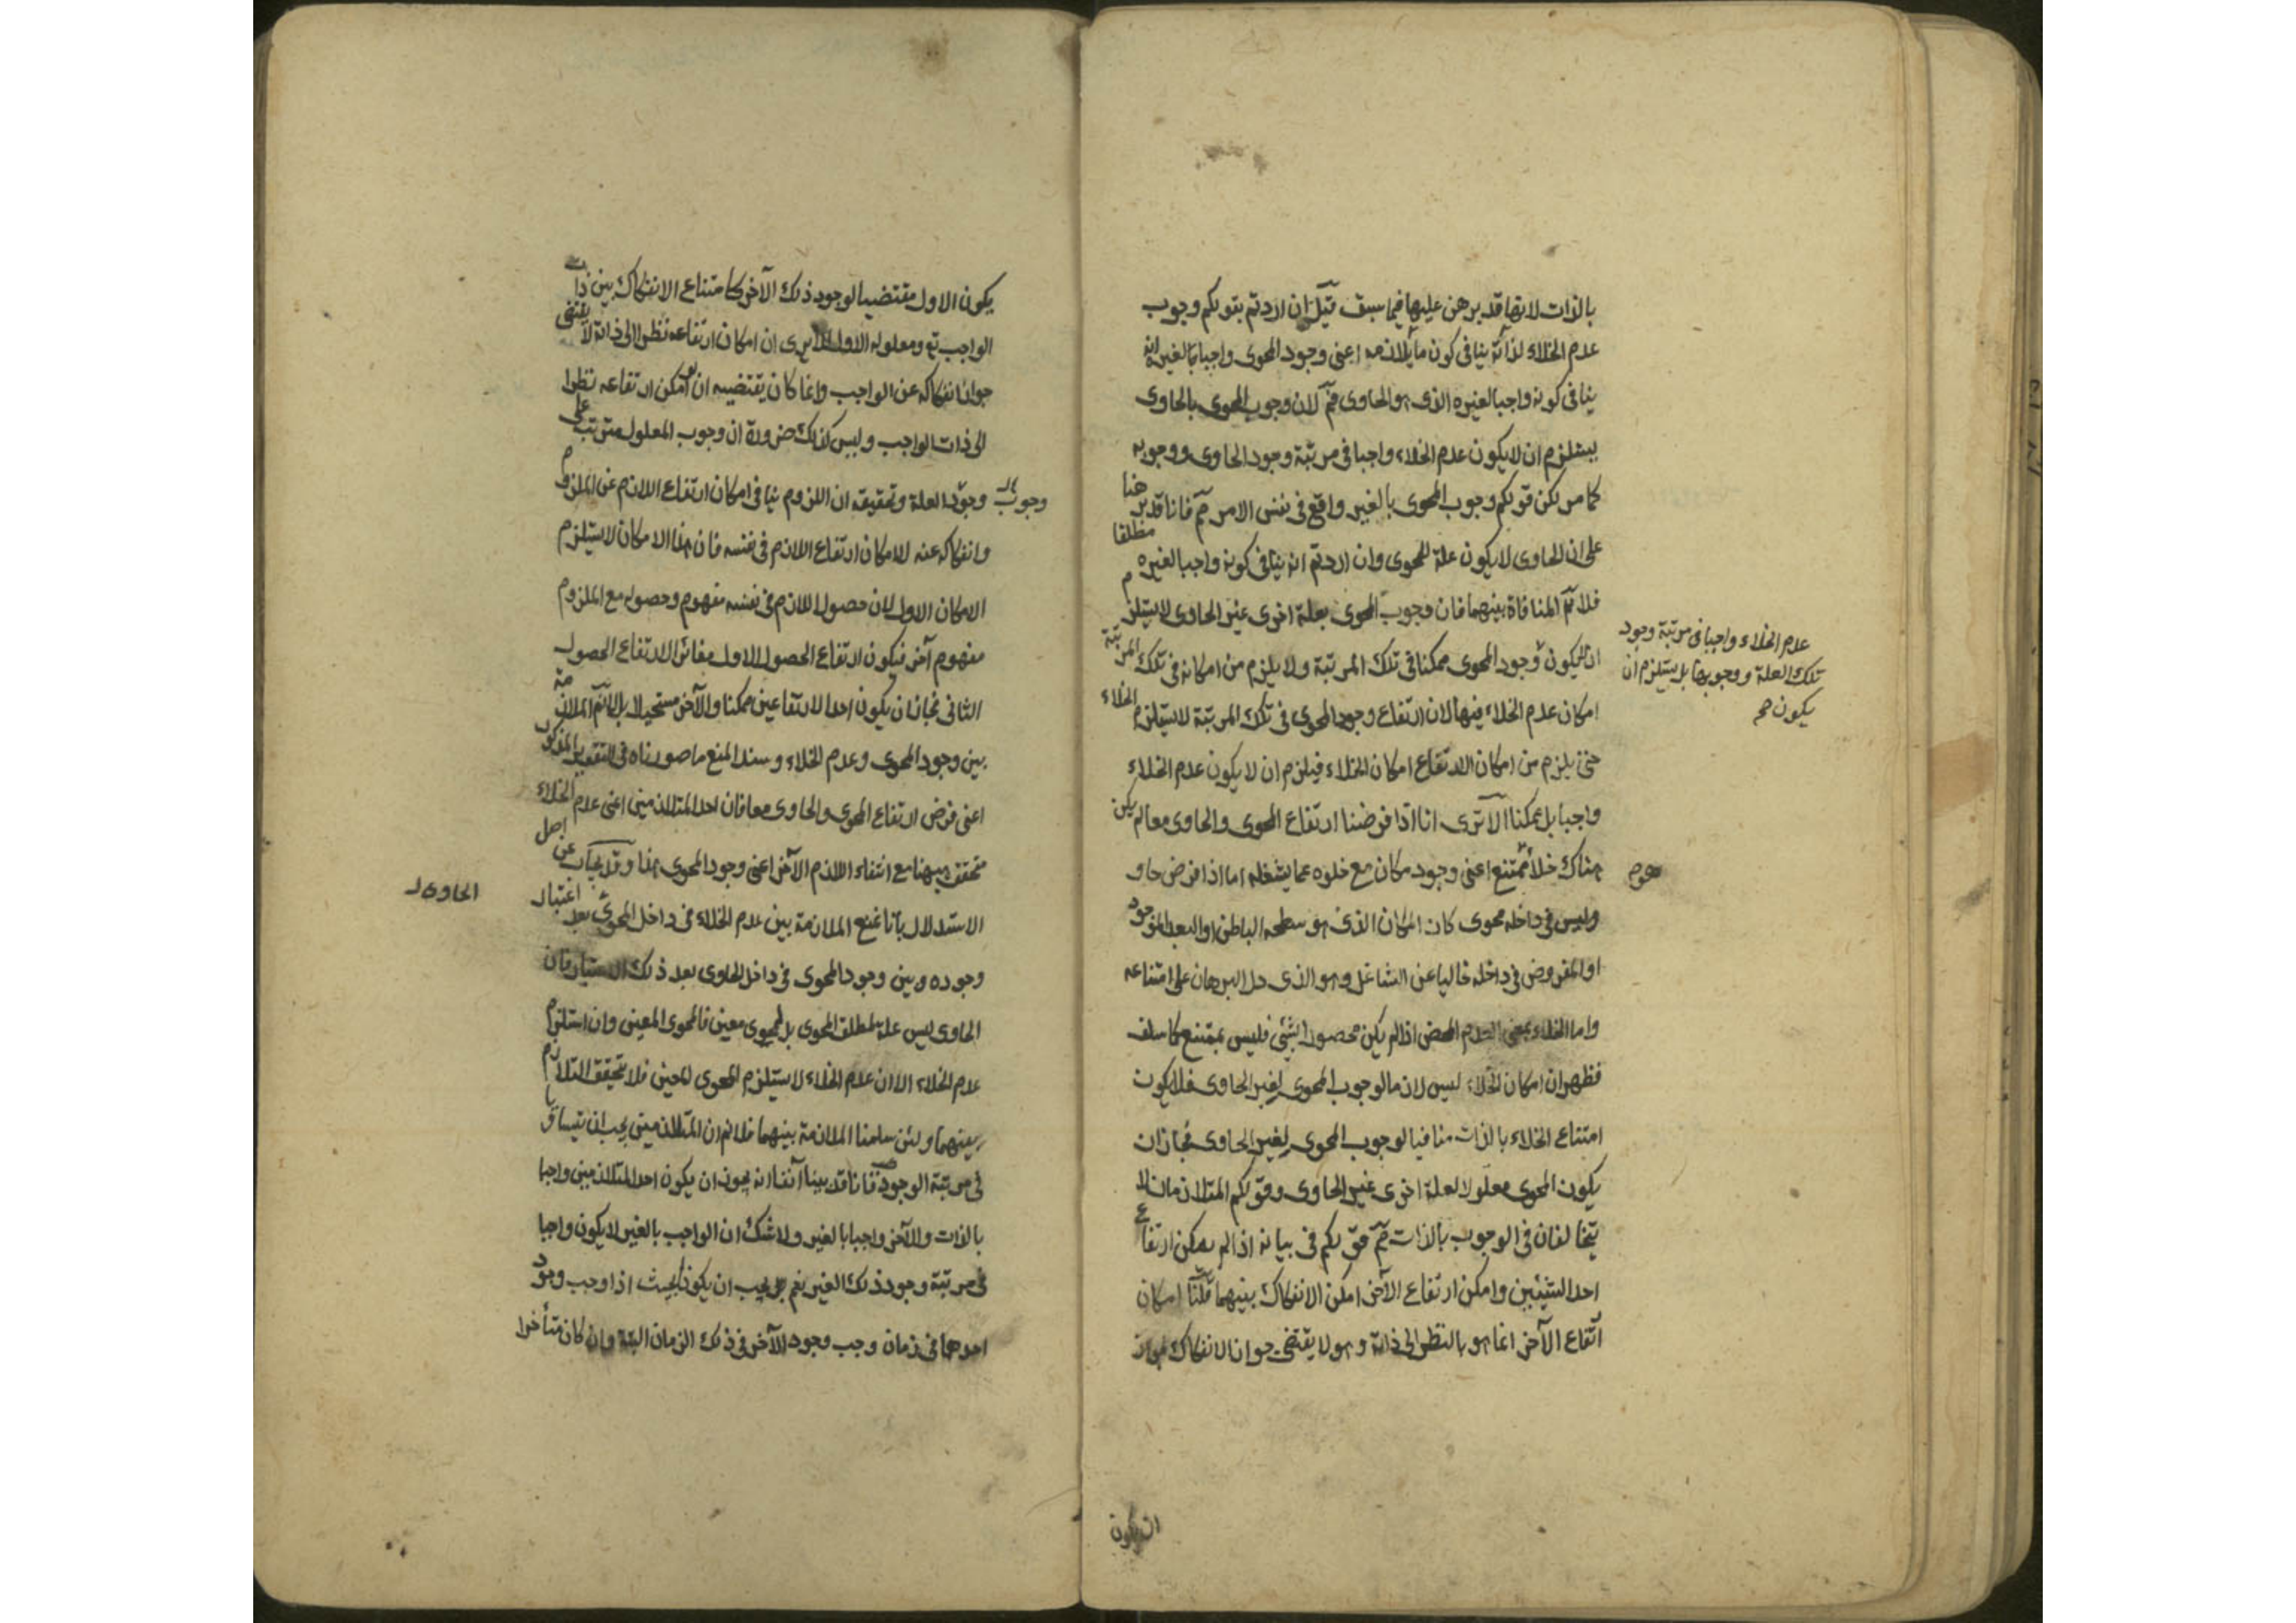 بالذات لانها قد برهن عليها فيما سبق قيل ان اردتم بقولكم وجوب
عدم الخلاء لذاته ينافى كون ما يلازمه اعنى وجود المحوى واجبا بالغير انه
ينافى كونه واجبا لغيره الذى هو الحاوى فم لان وجوب المحوى بالحاوى
يستلزم ان لا يكون عدم الخلاء واجبا فى مرتبة وجود الحاوى ووجوبه
كما مر لكن قولكم وجوب المحوى بالغير واقع فى نفس الامر مم فانا قد برهنا
على ان الحاوى لا يكون علة للمحوى وان اردتم انه ينافى كونه واجبا لغيره مطلقا
فلا نم المنافاة بينهما فان وجوب المحوى بعلة اخرى غير الحاوى لا يستلزم
عدم الخلاء واجبا فى مرتبة وجود
تلك العلة ووجوبها بل يستلزم ان
يكون صح
ان لا يكون وجود المحوى ممكنا فى تلك المرتبة ولا يلزم من امكانه فى تلك المرتبة
امكان عدم الخلاء فيها لان ارتفاع وجود المحوى فى تلك المرتبة لا يستلزم الخلاء
حتى يلزم من امكان الارتفاع امكان الخلاء فيلزم ان لا يكون عدم الخلاء
واجبا بل ممكنا الا ترى انا اذا فرضنا ارتفاع المحوى والحاوى معا لم يكن
هناك خلاء ممتنع اعنى وجود مكان مع خلوه عما يشغله اما اذا فرض حاو
وليس فى داخله محوى كان المكان الذى هو سطحه الباطن او البعد الموجود
او المفروض فى داخله خاليا عن الشاغل وهو الذى دل البرهان على امتناعه
واما الخلاء بمعنى العدم المحض اذا لم يكن محصورا بشئ فليس بممتنع كما سلف
فظهر ان امكان الخلاء ليس لازما لوجوب المحوى لغير الحاوى فلا يكون
امتناع الخلاء بالذات منافيا لوجوب المحوى لغير الحاوى فجاز ان
يكون المحوى معلولا لعلة اخرى غير الحاوى وقولكم المتلازمان لا
يتخالفان فى الوجوب بالذات مم قولكم فى بيانه اذا لم يمكن ارتفاع
احد الشيئين وامكن ارتفاع الآخر امكن الانفكاك بينهما قلنا امكان
ارتفاع الآخر انما هو بالنظر الى ذاته وهو لا يقتضى جواز الانفكاك لجواز
ان يكون
يكون الاول مقتضيا لوجود ذلك الآخر كامتناع الانفكاك بين ذات
الواجب تع ومعلوله الاول الا يرى ان امكان ارتفاعه نظرا الى ذاته لا يقتضى
جواز انفكاكه عن الواجب وانما كان يقتضيه ان لو امكن ارتفاعه نظرا
الى ذات الواجب وليس كذلك ضرورة ان وجوب المعلول مترتب على
وجوب وجود العلة وتحقيقه ان اللزوم ينافى امكان ارتفاع اللازم عن الملزوم
وانفكاكه عنه لا امكان ارتفاع اللازم فى نفسه فان هذا الامكان لا يستلزم
الامكان الاول لان حصول اللازم فى نفسه مفهوم وحصوله مع الملزوم
مفهوم آخر فيكون ارتفاع الحصول الاول مغائرا لارتفاع الحصول
الثانى فجاز ان يكون احد الارتفاعين ممكنا والآخر مستحيلا بل لا نم الملازمة
بين وجود المحوى وعدم الخلاء وسند المنع ما صورناه فى التقدير المذكور
اعنى فرض ارتفاع المحوى والحاوى معا فان احد المتلازمين اعنى عدم الخلاء
متحقق ههنا مع انتفاء اللازم الآخر اعنى وجود المحوى هذا وقد يجاب عن اصل
الاستدلال بانا نمنع الملازمة بين عدم الخلاء فى داخل المحوى بعد اعتبار
الحاوى
وجوده وبين وجود المحوى فى داخل الحاوى بعد ذلك الاعتبار فان
الحاوى ليس علة لمطلق المحوى بل لمحوى معين فالمحوى المعين وان استلزم
عدم الخلاء الا ان عدم الخلاء لا يستلزم المحوى المعين فلا يتحقق التلازم
بينهما ولئن سلمنا الملازمة بينهما فلا نم ان المتلازمين يجب ان يتساويا
فى مرتبة الوجود فانا قد بينا آنفا انه يجوز ان يكون احد المتلازمين واجبا
بالذات والآخر واجبا بالغير ولا شك ان الواجب بالغير لا يكون واجبا
فى مرتبة وجود ذلك الغير نعم يجب ان يكون بحيث اذا وجب وجود
احدهما فى زمان وجب وجود الآخر فى ذلك الزمان البتة وان كان متأخرا